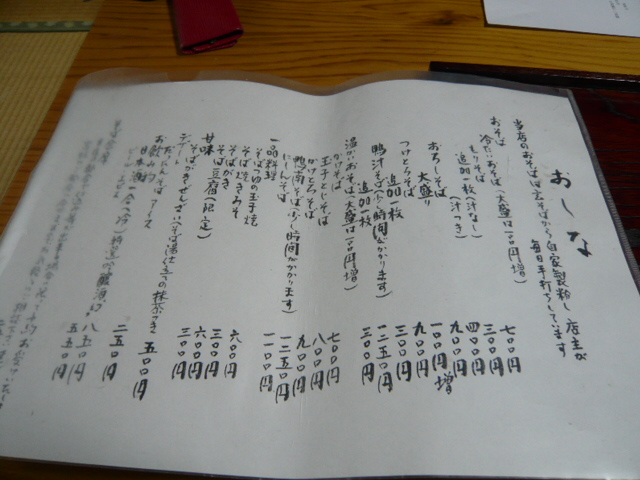 おしな
当店のおそばは玄そばから自家製粉し店主が
毎日手打ちしています
おそば
冷たいおそば(大盛は一〇〇円増)
もりそば 七〇〇円
追加一枚(汁なし) 三〇〇円
追加一枚(汁つき) 四〇〇円
おろしそば 九〇〇円
大盛り 一〇〇円増
つけとろそば 九〇〇円
追加一枚 三〇〇円
鴨汁そば(少し時間がかかります) 一二五〇円
追加一枚 三〇〇円
温かいおそば(大盛は一〇〇円増)
かけそば 七〇〇円
玉子とじそば 八〇〇円
かけとろそば 九〇〇円
鴨南そば(少し時間がかかります) 一二五〇円
にしんそば 一一〇〇円
一品料理
そばつゆの玉子焼 六〇〇円
そば焼きみそ 三〇〇円
そばがき 六〇〇円
そば豆腐(限定) 三〇〇円
甘味
そばがきぜんざい(そば湯仕立ての抹茶つき 五〇〇円
デザート
アイス 二五〇円
お飲み物
日本酒一合(冷)
ビール 五五〇円